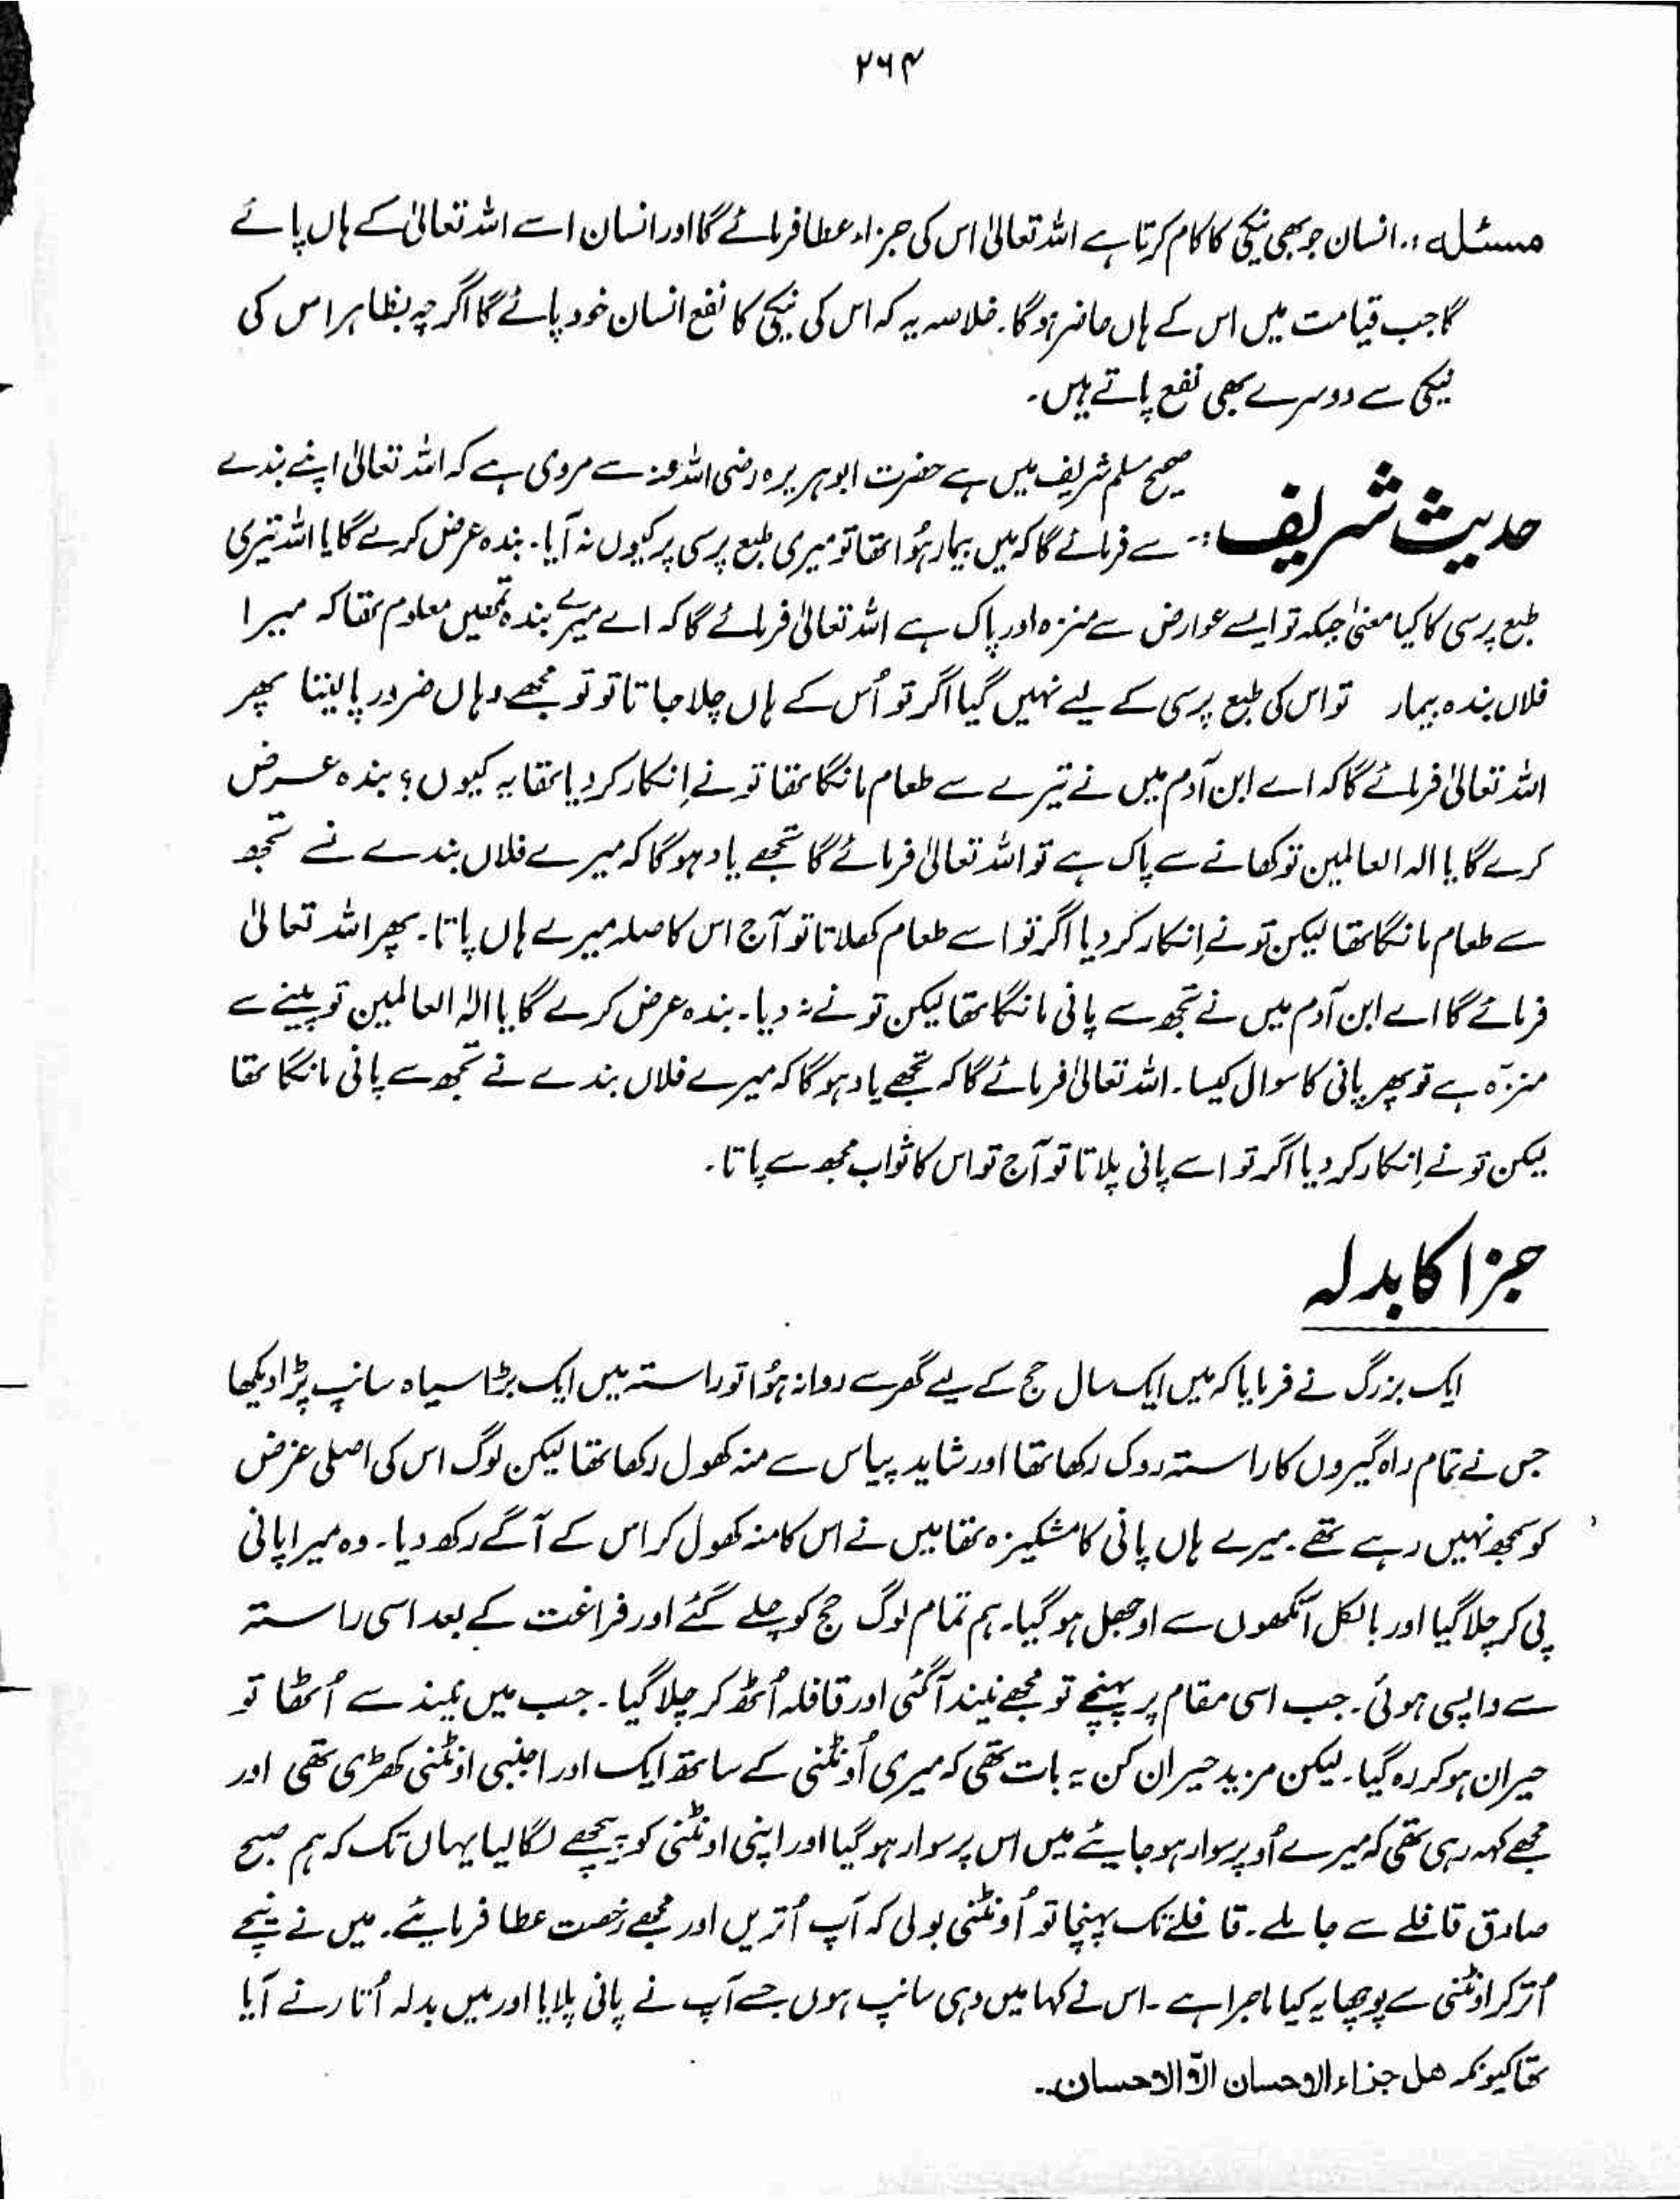 ۲۶۴
مسئلہ :. انسان جو بھی نیکی کا کام کرتا ہے اللہ تعالیٰ اس کی جزاء عطا فرمائے گا اور انسان اسے اللہ تعالیٰ کے ہاں پائے
گا جب قیامت میں اس کے ہاں حاضر ہو گا۔ خلاصہ یہ کہ اس کی نیکی کا نفع انسان خود پائے گا اگرچہ بظاہر اس کی
نیکی سے دوسرے بھی نفع پاتے ہیں۔
صحیح مسلم شریف میں ہے حضرت ابوہریرہ رضی اللہ عنہ سے مروی ہے کہ اللہ تعالیٰ اپنے بندے
حدیث شریف :- سے فرمائے گا کہ میں بیمار ہُوا تھا تو میری طبع پرسی پر کیوں نہ آیا۔ بندہ عرض کرے گا یا اللہ تیری
طبع پرسی کا کیا معنیٰ جبکہ تو ایسے عوارض سے منزہ اور پاک ہے اللہ تعالیٰ فرمائے گا کہ اے میرے بندہ تمھیں معلوم تھا کہ میرا
فلاں بندہ بیمار تو اس کی طبع پرسی کے لیے نہیں گیا اگر تو اُس کے ہاں چلا جاتا تو تو مجھے وہاں ضرور پا لیتا پھر
اللہ تعالیٰ فرمائے گا کہ اے ابن آدم میں نے تیرے سے طعام مانگا تھا تو نے اِنکار کر دیا تھا یہ کیوں؟ بندہ عرض
کرے گا یا الہ العالمین تو کھانے سے پاک ہے تو اللہ تعالیٰ فرمائے گا تجھے یاد ہو گا کہ میرے فلاں بندے نے تجھ
سے طعام مانگا تھا لیکن تو نے اِنکار کر دیا اگر تو اسے طعام کھلاتا تو آج اس کا صلہ میرے ہاں پاتا۔ پھر اللہ تعالیٰ
فرمائے گا اے ابن آدم میں نے تجھ سے پانی مانگا تھا لیکن تو نے نہ دیا۔ بندہ عرض کرے گا یا الٰہ العالمین تو پینے سے
منزّہ ہے تو پھر پانی کا سوال کیسا۔ اللہ تعالیٰ فرمائے گا کہ تجھے یاد ہو گا کہ میرے فلاں بندے نے تجھ سے پانی مانگا تھا
لیکن تو نے اِنکار کر دیا اگر تو اسے پانی پلاتا تو آج تو اس کا ثواب مجھ سے پاتا۔
جزا کا بدلہ
ایک بزرگ نے فرمایا کہ میں ایک سال حج کے لیے گھر سے روانہ ہُوا تو راستہ میں ایک بڑا سیاہ سانپ پڑا دیکھا
جس نے تمام راہ گیروں کا راستہ روک رکھا تھا اور شاید پیاس سے منہ کھول رکھا تھا لیکن لوگ اس کی اصلی غرض
کو سمجھ نہیں رہے تھے۔ میرے ہاں پانی کا مشکیزہ تھا میں نے اس کا منہ کھول کر اس کے آگے رکھ دیا۔ وہ میرا پانی
پی کر چلا گیا اور بالکل آنکھوں سے اوجھل ہو گیا۔ ہم تمام لوگ حج کو چلے گئے اور فراغت کے بعد اسی راستہ
سے واپسی ہوئی۔ جب اسی مقام پر پہنچے تو مجھے نیند آ گئی اور قافلہ اُٹھ کر چلا گیا۔ جب میں نیند سے اُٹھا تو
حیران ہو کر رہ گیا۔ لیکن مزید حیران کن یہ بات تھی کہ میری اُونٹنی کے ساتھ ایک اور اجنبی اونٹنی کھڑی تھی اور
مجھے کہہ رہی تھی کہ میرے اُوپر سوار ہو جایئے میں اس پر سوار ہو گیا اور اپنی اونٹنی کو پیچھے لگا لیا یہاں تک کہ ہم صبح
صادق قافلے سے جا ملے۔ قافلے تک پہنچا تو اُونٹنی بولی کہ آپ اُتریں اور مجھے رخصت عطا فرمایئے۔ میں نے نیچے
اُتر کر اونٹنی سے پوچھا یہ کیا ماجرا ہے۔ اس نے کہا میں وہی سانپ ہوں جسے آپ نے پانی پلایا اور میں بدلہ اُتارنے آیا
تھا کیونکہ هل جزاء الاحسان الّا الاحسان۔